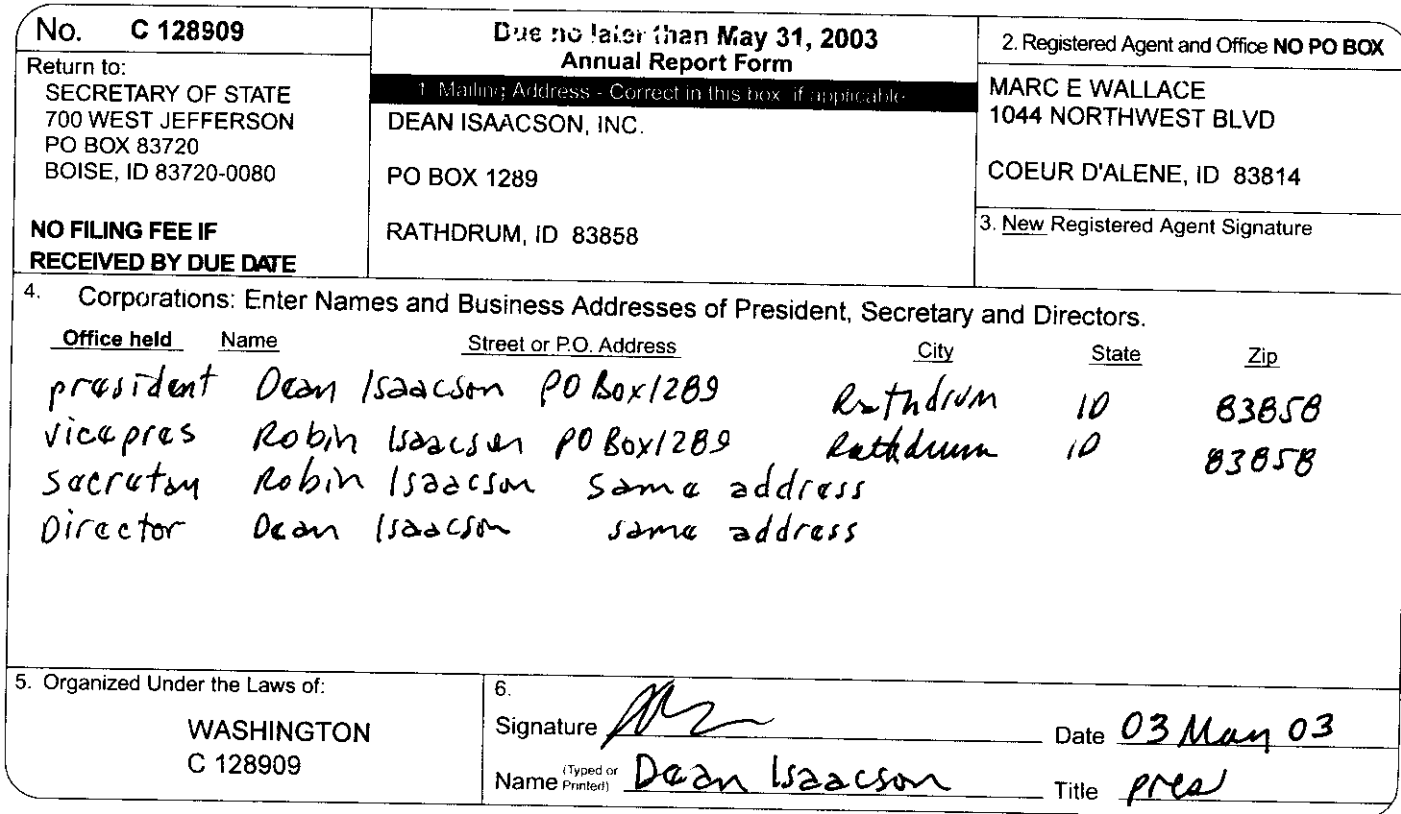 No. C 128909
Return to:
SECRETARY OF STATE
700 WEST JEFFERSON
PO BOX 83720
BOISE, ID 83720-0080
NO FILING FEE IF
RECEIVED BY DUE DATE
Due no later than May 31, 2003
Annual Report Form
1. Mailing Address - Correct in this box if applicable
DEAN ISAACSON, INC.
PO BOX 1289
RATHDRUM, ID 83858
2. Registered Agent and Office NO PO BOX
MARC E WALLACE
1044 NORTHWEST BLVD
COEUR D'ALENE, ID 83814
3. New Registered Agent Signature
4. Corporations: Enter Names and Business Addresses of President, Secretary and Directors.
Office held Name Street or P.O. Address City State Zip
president Dean Isaacson PO Box 1289 Rathdrum ID 83858
vice pres Robin Isaacson PO Box 1289 Rathdrum ID 83858
Secretary Robin Isaacson Same address
Director Dean Isaacson same address
5. Organized Under the Laws of:
WASHINGTON
C 128909
6.
Signature Date 03 May 03
Name (Typed or Printed) Dean Isaacson Title pres